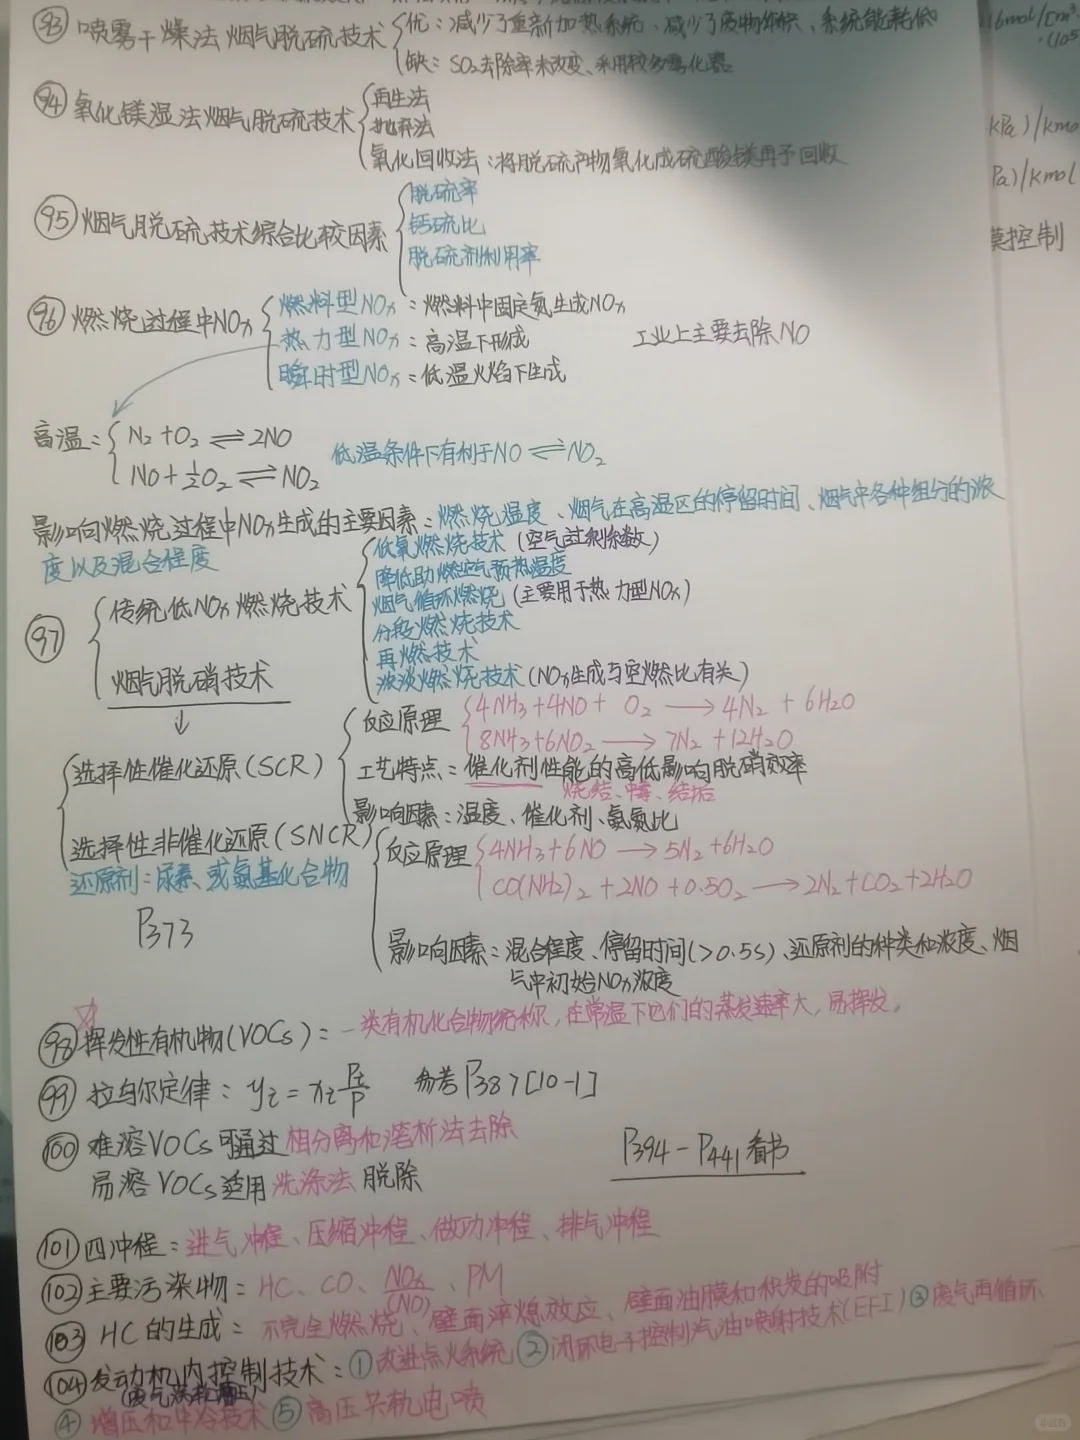 93 喷雾干燥法烟气脱硫技术 优：减少了重新加热系统、减少了废物体积、系统能耗低
缺：SO₂去除率未改变、采用较多雾化器
94 氧化镁湿法烟气脱硫技术 再生法
抛弃法
氧化回收法：将脱硫产物氧化成硫酸镁再予回收
95 烟气脱硫技术综合比较因素 脱硫率
钙硫比
脱硫剂利用率
96 燃烧过程中NOx 燃料型NOx：燃料中固定氮生成NOx
热力型NOx：高温下形成 工业上主要去除NO
瞬时型NOx：低温火焰下生成
高温： N₂+O₂⇌2NO
NO+½O₂⇌NO₂ 低温条件下有利于NO⇌NO₂
影响燃烧过程中NOx生成的主要因素：燃烧温度、烟气在高温区的停留时间、烟气中各种组分的浓
度以及混合程度
97 传统低NOx燃烧技术 低氧燃烧技术（空气过剩系数）
降低助燃空气预热温度
烟气循环燃烧（主要用于热力型NOx）
分段燃烧技术
再燃技术
浓淡燃烧技术（NOx生成与空燃比有关）
烟气脱硝技术
选择性催化还原（SCR） 反应原理 4NH₃+4NO+O₂→4N₂+6H₂O
8NH₃+6NO₂→7N₂+12H₂O
工艺特点：催化剂性能的高低影响脱硝效率
烧结、中毒、结垢
影响因素：温度、催化剂、氨氮比
选择性非催化还原（SNCR） 反应原理 4NH₃+6NO→5N₂+6H₂O
还原剂：尿素、或氨基化合物 CO(NH₂)₂+2NO+0.5O₂→2N₂+CO₂+2H₂O
P373
影响因素：混合程度、停留时间（>0.5s）、还原剂的种类和浓度、烟
气中初始NOx浓度
98 挥发性有机物（VOCs）：一类有机化合物统称，在常温下它们的蒸发速率大，易挥发。
99 拉乌尔定律：yi=xi Pi/P 参考P387[10-1]
100 难溶VOCs可通过相分离和蒸析法去除
易溶VOCs适用洗涤法脱除 P394-P441看书
101 四冲程：进气冲程、压缩冲程、做功冲程、排气冲程
102 主要污染物：HC、CO、NOx(NO)、PM
103 HC的生成：不完全燃烧、壁面淬熄效应、壁面油膜和积炭的吸附
104 发动机内控制技术：①改进点火系统②闭环电子控制汽油喷射技术（EFI）③废气再循环
④增压和中冷技术⑤高压共轨电喷
16mol/[cm³
kPa)/kmo
Pa)/kmol
莫控制